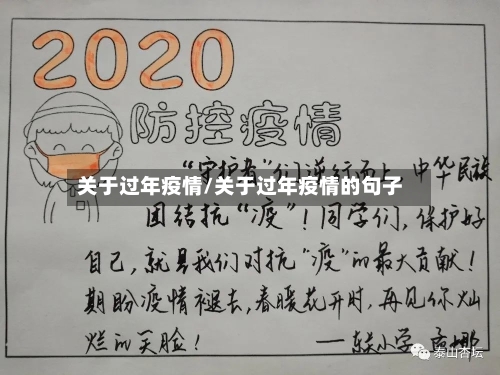 2020
防控疫情
"守护者"们逆行而上,中华民族
关于过年疫情/关于过年疫情的句子
团结抗"疫"!同学们,保护好
自己,就是我们对抗"疫"的最大贡献!
期盼疫情褪去,春暖花开时,再见你灿
烂的笑脸!
——东关小学
泰山杏坛